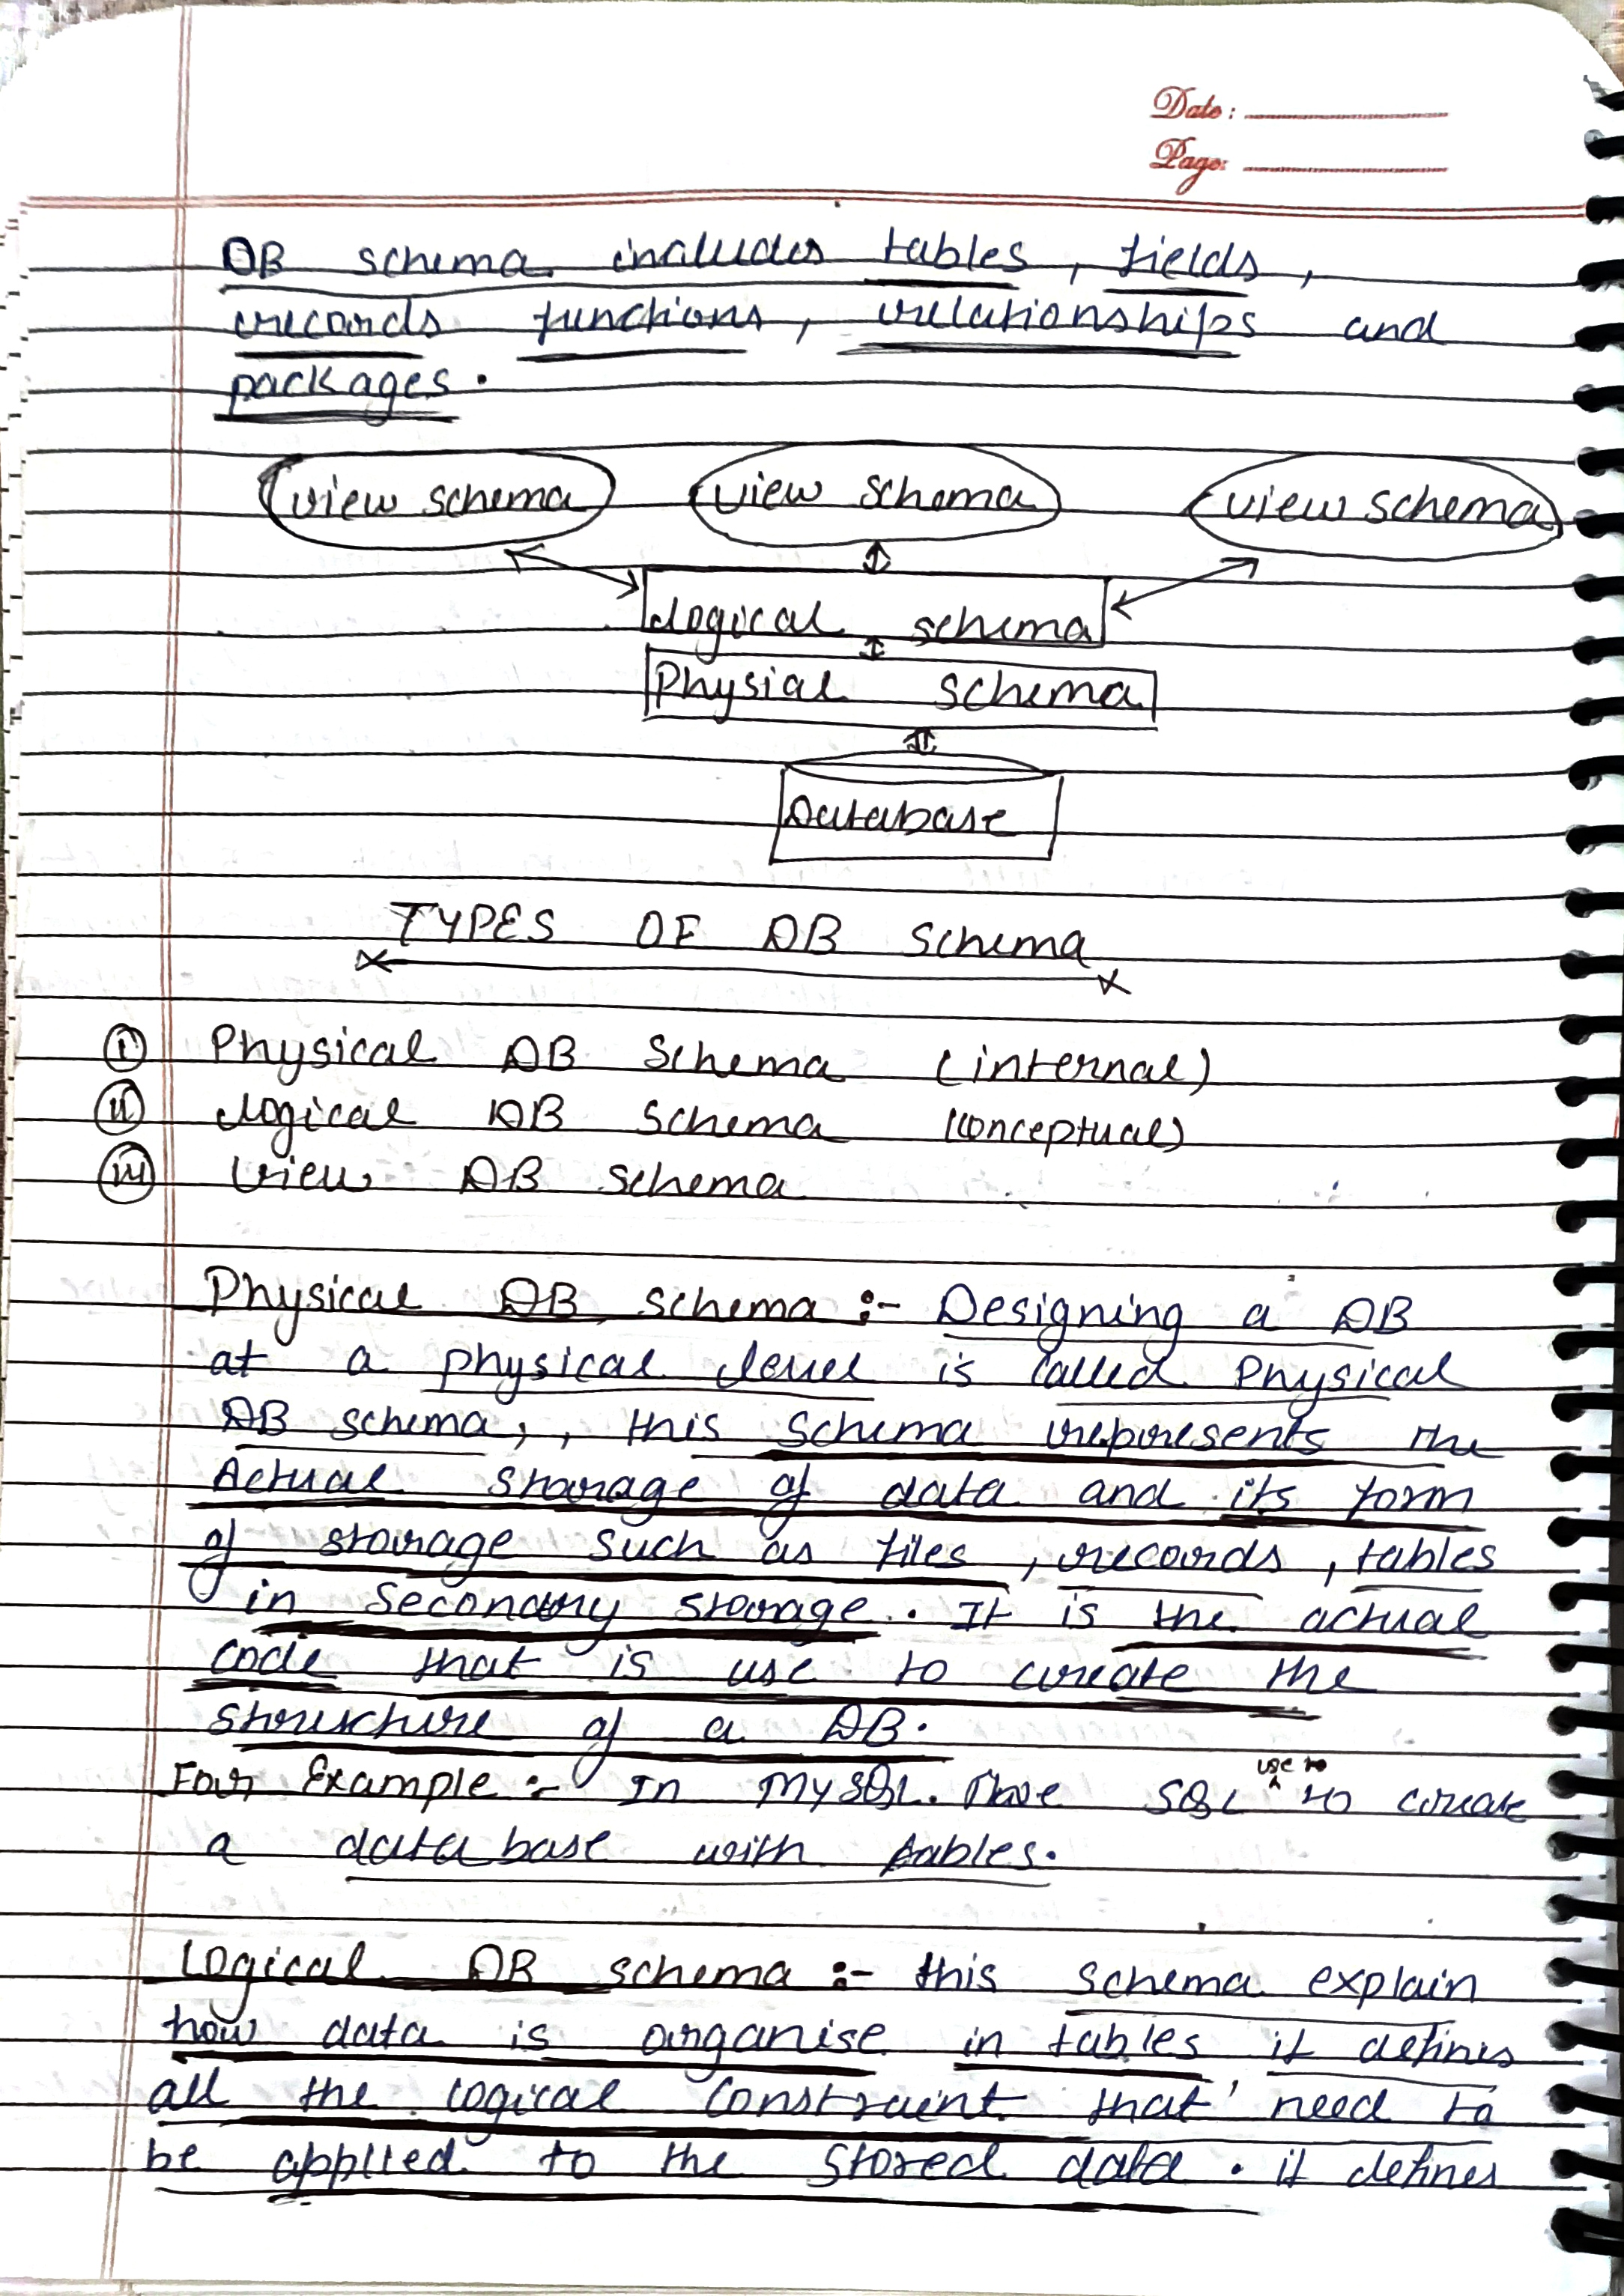 Date:
Page:
DB schema includes tables, fields,
records functions, relationships and
packages.
view schema view schema view schema
logical schema
Physial schema
Database
TYPES OF DB schema
i Physical DB Schema (internal)
ii logical DB schema (conceptual)
iii View DB schema
Physical DB schema :- Designing a DB
at a physical level is called Physical
DB schema, , this schema represents the
Actual storage of data and its form
of storage such as files, records, tables
in secondary storage. It is the actual
code that is use to create the
structure of a DB.
For Example :- In MySQL. SQL use to to create
a database with tables.
Logical DB schema :- this schema explain
how data is organise in tables it defines
all the logical constraint that need to
be applied to the stored data. it defines